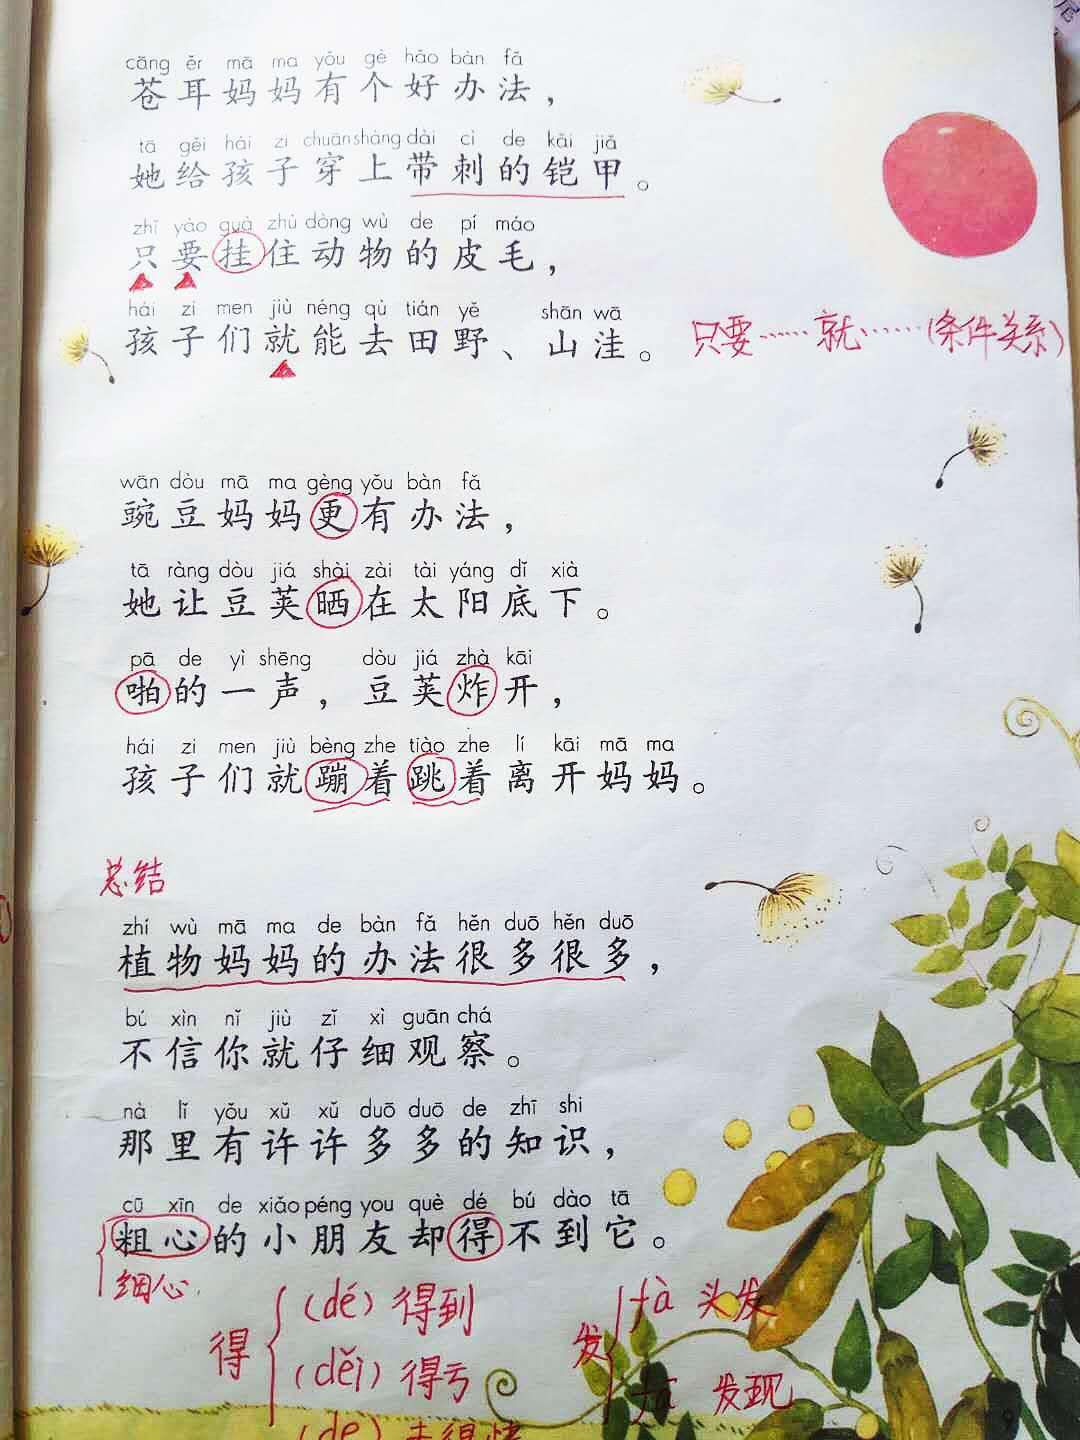 cāng ěr mā ma yǒu gè hǎo bàn fǎ
苍耳妈妈有个好办法，
tā gěi hái zi chuān shàng dài cì de kǎi jiǎ
她给孩子穿上带刺的铠甲。
zhǐ yào guà zhù dòng wù de pí máo
只要挂住动物的皮毛，
hái zi men jiù néng qù tián yě shān wā
孩子们就能去田野、山洼。
只要……就……（条件关系）
wān dòu mā ma gèng yǒu bàn fǎ
豌豆妈妈更有办法，
tā ràng dòu jiá shài zài tài yáng dǐ xià
她让豆荚晒在太阳底下。
pā de yì shēng dòu jiá zhà kāi
啪的一声，豆荚炸开，
hái zi men jiù bèng zhe tiào zhe lí kāi mā ma
孩子们就蹦着跳着离开妈妈。
总结
zhí wù mā ma de bàn fǎ hěn duō hěn duō
植物妈妈的办法很多很多，
bú xìn nǐ jiù zǐ xì guān chá
不信你就仔细观察。
nà lǐ yǒu xǔ xǔ duō duō de zhī shi
那里有许许多多的知识，
cū xīn de xiǎo péng you què dé bú dào tā
粗心的小朋友却得不到它。
细心
得
（dé）得到
（děi）得亏
（de）
发
fà 头发
fā 发现
9